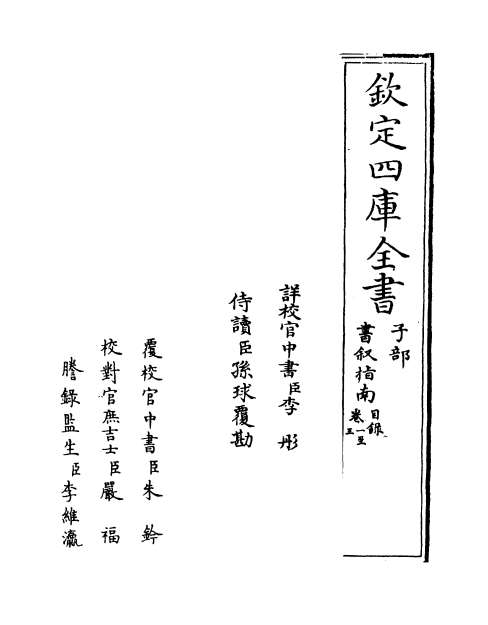 欽定四庫全書
子部
書叙指南 目録 卷一至五
詳校官中書臣李彤
侍讀臣孫球覆勘
覆校官中書臣朱鈐
校對官庶吉士臣嚴福
謄錄監生臣李維瀛